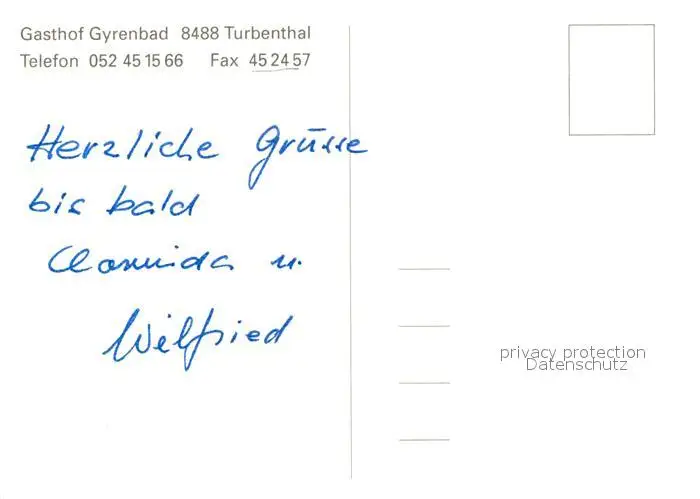 Gasthof Gyrenbad 8488 Turbenthal
Telefon 052 45 15 66 Fax 45 24 57
Herzliche Grüsse
bis bald
u.
Wilfried
privacy protection
Datenschutz